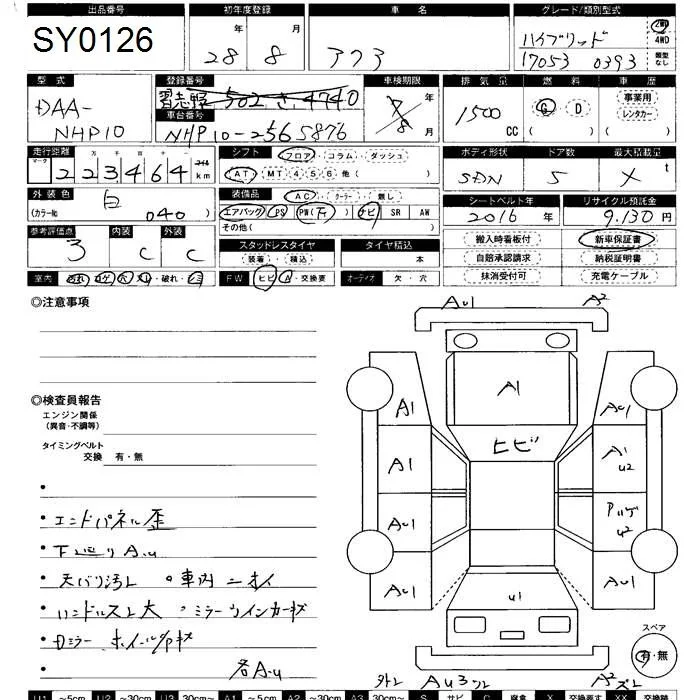 出品番号 初年度登録 車名 グレード/類別型式
SY0126 28年 8月 アクア ハイブリッド 2WD 4WD
17053 0393 類型なし
型式 登録番号 車検期限 排気量 燃料 車歴
DAA-NHP10 習志野 502 さ 4740 年 1500 CC G D 事業用
車台番号 レンタカー
NHP10-2565876 8月
走行距離 シフト フロア・コラム・ダッシュ ボディ形状 ドア数 最大積載量
マーク 十万 千 百 十
223464 km マイル AT MT 4 5 6 他( ) SDN 5 X t
外装色 装備品 AC・クーラー・無し シートベルト年 リサイクル預託金
白 エアバック PS PW(下) ナビ SR AW 2016年 9,130円
(カラーNo. 040) その他( )
参考評価点 内装 外装 スタッドレスタイヤ タイヤ積込 搬入時看板付 新車保証書
3 C C 装着・積込 本 自賠承認請求 納税証明書
室内 汚れ・コゲ・穴・スレ・破れ・シミ FW ヒビ・A・交換要 オーディオ 欠・穴 抹消受付可 充電ケーブル
◎注意事項
AU1 A2
A1
◎検査員報告
エンジン関係
(異音・不調等)
タイミングベルト
交換 有・無
ヒビ
A1 AU1
A1 A1 U2
AU1 U2
AU1 AU1
U1
・エンドパネル歪
・下廻りA.u
・天バリ汚レ ・車内ニオイ
・ハンドルスレ大 ・ミラーウインカーキズ
・Dミラー ホイールキズ
各A-u
スペア
有・無
外レ AU3 ソレ A3ズレ
U1 ~5cm U2 ~30cm U3 30cm~ A1 ~5cm A2 ~30cm A3 30cm~ S サビ C 腐食 X 交換要す XX 交換跡